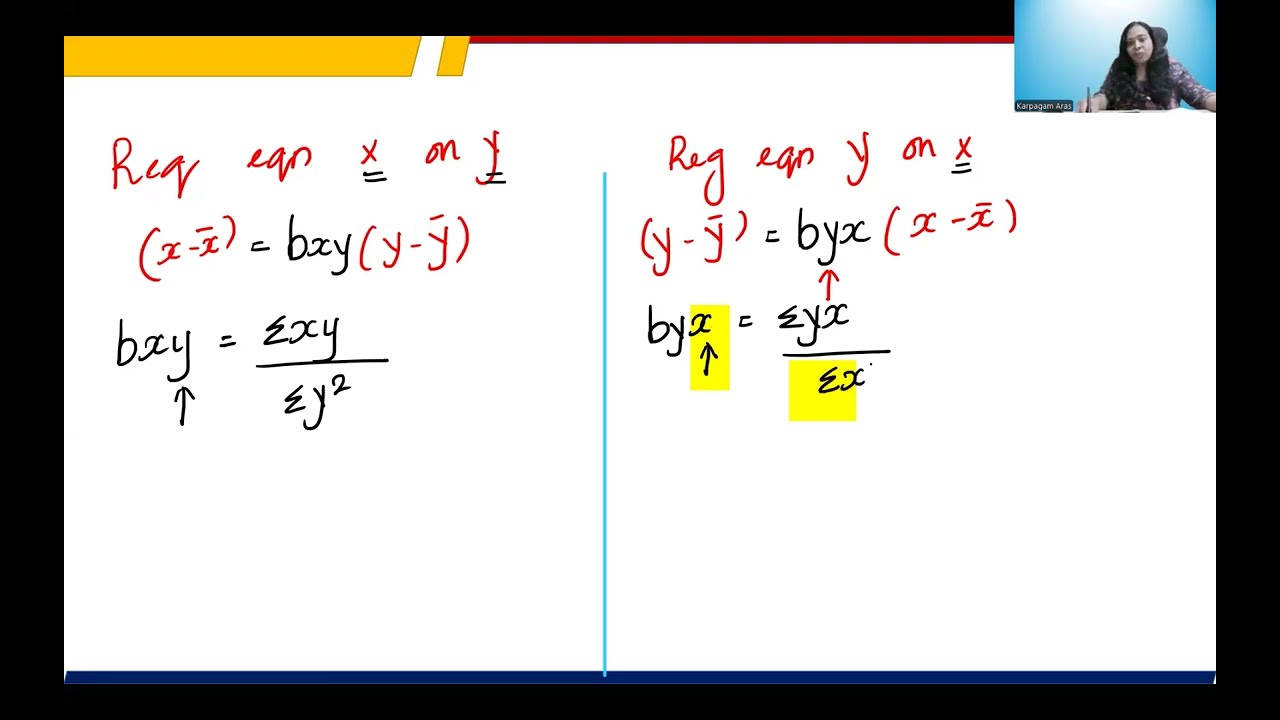 Karpagam Aras
Reg eqn x on y
(x-x̄) = bxy(y-ȳ)
bxy = Σxy
Σy²
Reg eqn y on x
(y-ȳ) = byx(x-x̄)
byx = Σyx
Σx